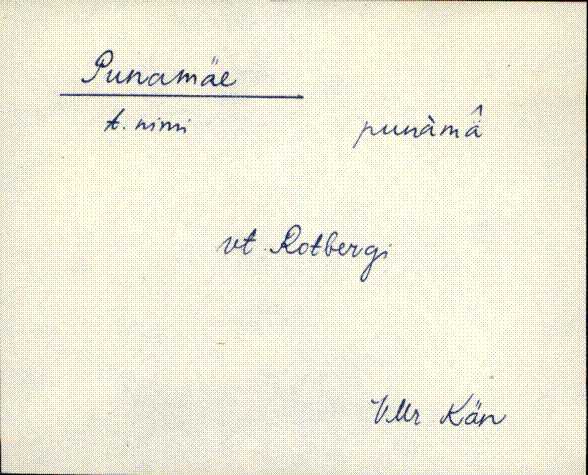 Punamäe
t. nimi punàmä̂
vt. Rotbergi
VMr Kän